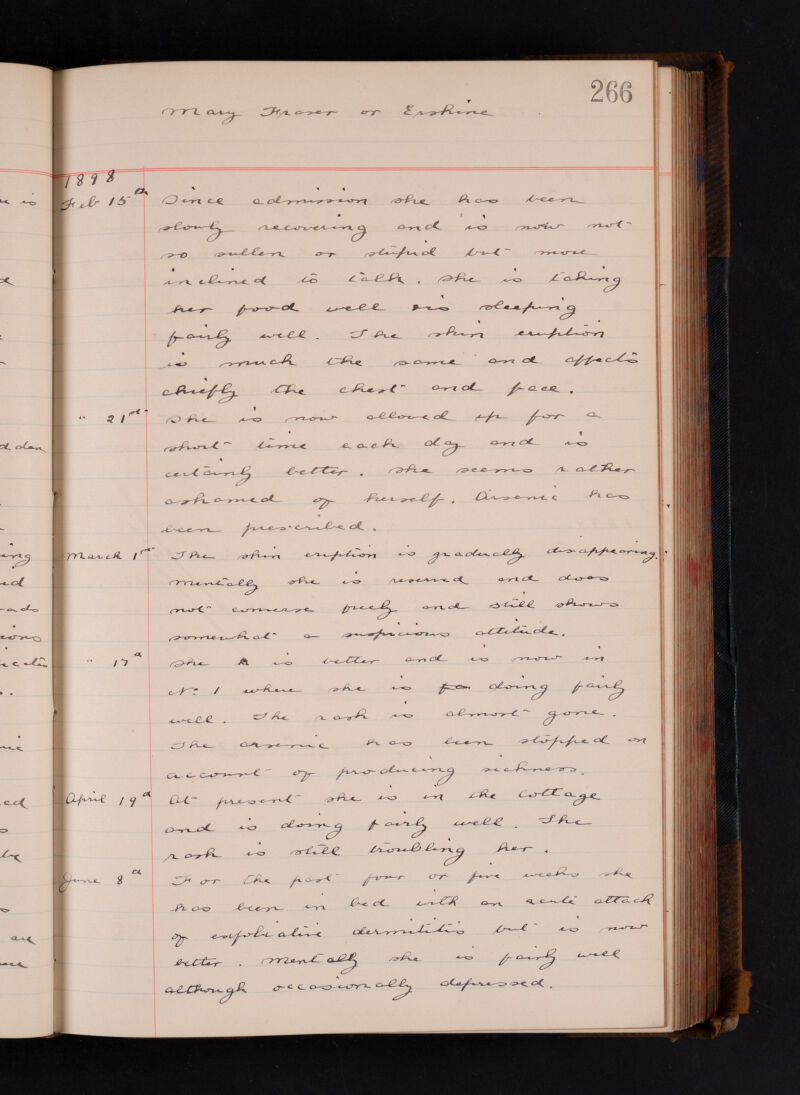 266
Mary Fraser or Erskine
1898
Feb 15th Since admission she has been
slowly recovering and is now not
so sullen or stupid but more
inclined to talk. She is taking
her food well & is sleeping
fairly well. The skin eruption
is much the same and affects
chiefly the chest and face.
" 21st She is now allowed up for a
short time each day and is
certainly better. She seems rather
ashamed of herself. Arsenic has
been prescribed.
March 1st The skin eruption is gradually disappearing.
Mentally she is reserved and does
not converse freely and still shows
somewhat a suspicious attitude.
" 17th She is better and is now in
No 1 where she is doing fairly
well. The rash is almost gone.
The arsenic has been stopped on
account of producing sickness.
April 19th At present she is in the Cottage
and is doing fairly well. The
rash is still troubling her.
June 8th For the past four or five weeks she
has been in bed with an acute attack
of exfoliative dermititis but is now
better. Mentally she is fairly well
although occasionally depressed.